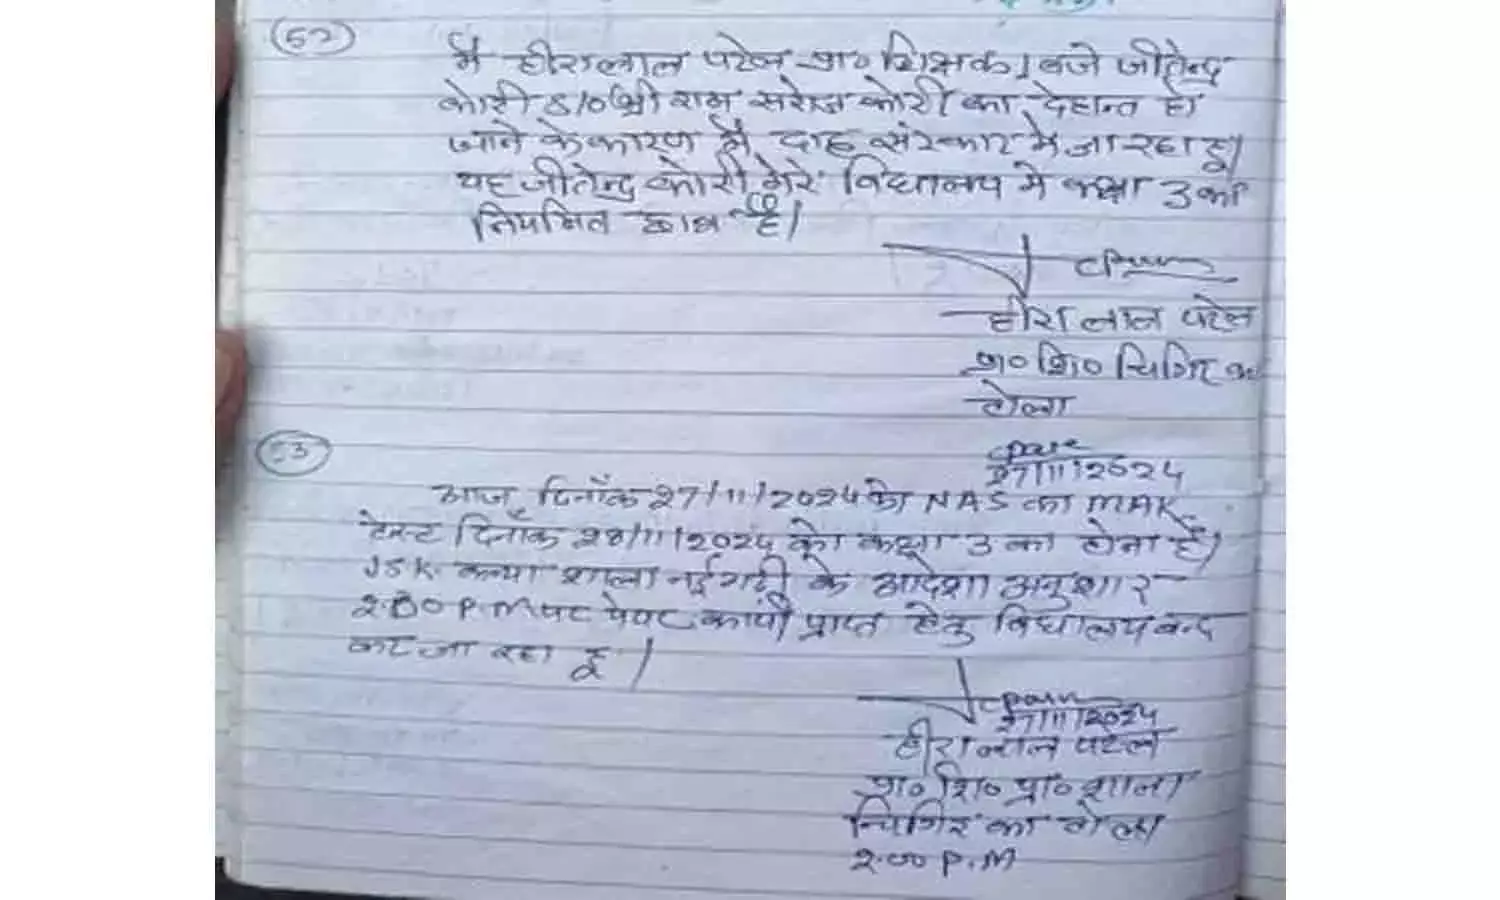 (52)
मै हीरालाल पटेल प्रा० शिक्षक 1 बजे जीतेन्द्र
कोरी S/O श्री राम सरोज कोरी का देहान्त हो
जाने के कारण मै दाह संस्कार मे जा रहा हू।
यह जीतेन्द्र कोरी मेरे विद्यालय मे कक्षा 3 का
नियमित छात्र है।
हीरा लाल पटेल
प्रा० शि० चिगिर का
टोला
27/11/2024
(53)
आज दिनाँक 27/11/2024 को NAS का MAK
टेस्ट दिनाँक 28/11/2024 को कक्षा 3 का होना है।
JSK. कन्या शाला नईगढ़ी के आदेशा अनुशार
2.00 P.M पर पेपर कापी प्राप्त हेतु विद्यालय बन्द
कर जा रहा हू।
27/11/2024
हीरा लाल पटेल
प्रा० शि० प्रा० शाला
चिगिर का टोला
2.00 P.M